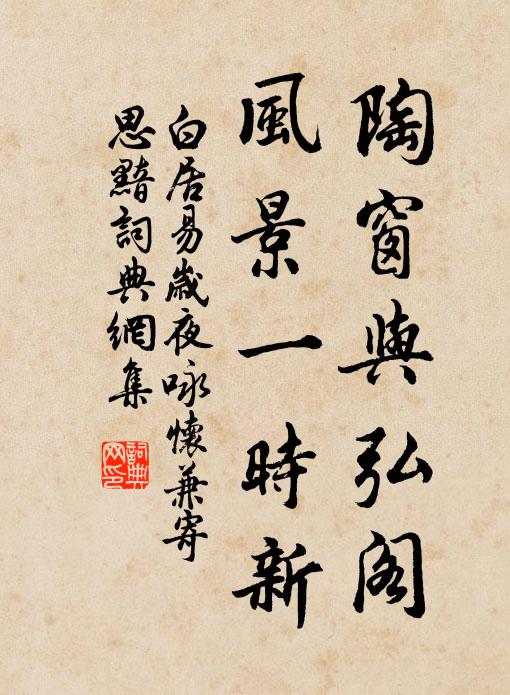 陶窗與弘閣
風景一時新
白居易歲夜咏懷兼寄
思黯詞典網集
詞典网印